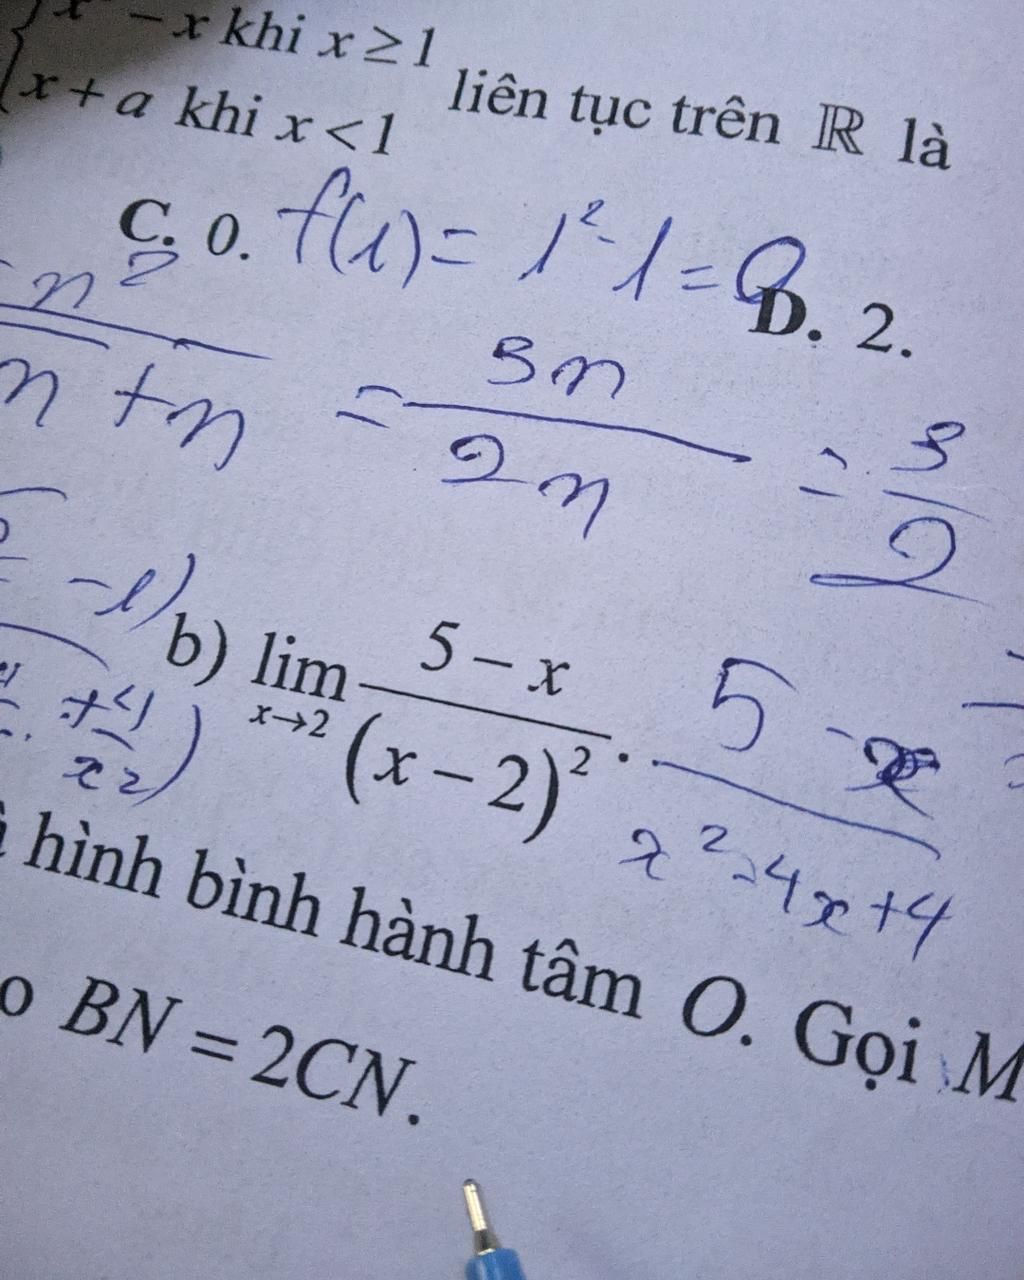 x² - x khi x ≥ 1
x + a khi x < 1
liên tục trên ℝ là
C. 0. f(1) = 1² - 1 = 0
D. 2.
n²
n + n = 3n / 2n = 3 / 2
- 1)
b) lim x→2 (5 - x) / (x - 2)². 5 - x / x² - 4x + 4
hình bình hành tâm O. Gọi M
BN = 2CN.